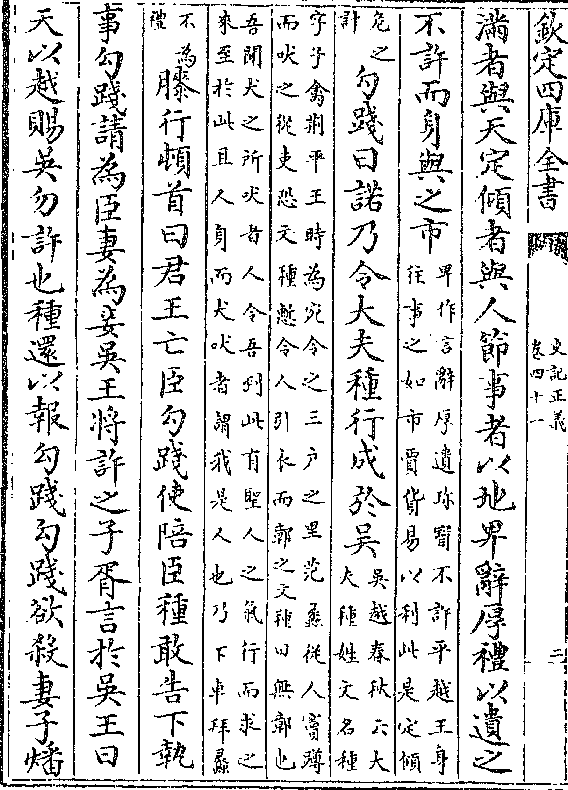 欽定四庫全書
史記正義
卷四十一
二
滿者與天定傾者與人節事者以地卑辭厚禮以遺之
不許而身與之市
卑作言辭厚遺珍寳不許平越王身
往事之如市賈貨易以利此是定傾
危之
計
勾踐曰諾乃令大夫種行成於吳
吳越春秋云大
夫種姓文名種
字子禽荆平王時為宛令之三户之里范蠡從人竇蹲
而吠之從吏恐文種慙令人引衣而鄣之文種曰無鄣也
吾聞犬之所吠者人今吾到此有聖人之氣行而求之
來至於此且人身而犬吠者謂我是人也乃下車拜蠡
不為
禮
膝行頓首曰君王亡臣勾踐使陪臣種敢告下執
事勾踐請為臣妻為妾吳王將許之子胥言於吳王曰
天以越賜吳勿許也種還以報勾踐勾踐欲殺妻子燔